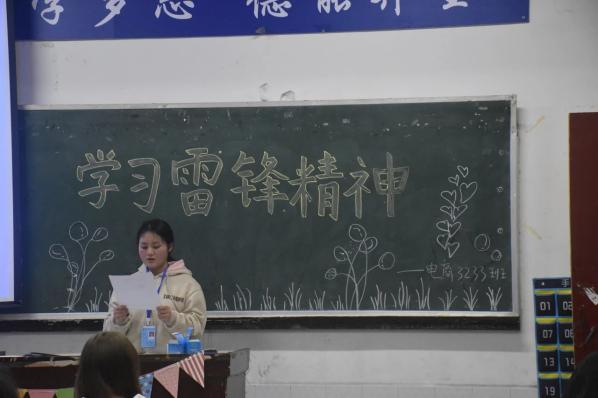 学习雷锋精神
—电商3233班
手
01 02
07 08
13 14
19